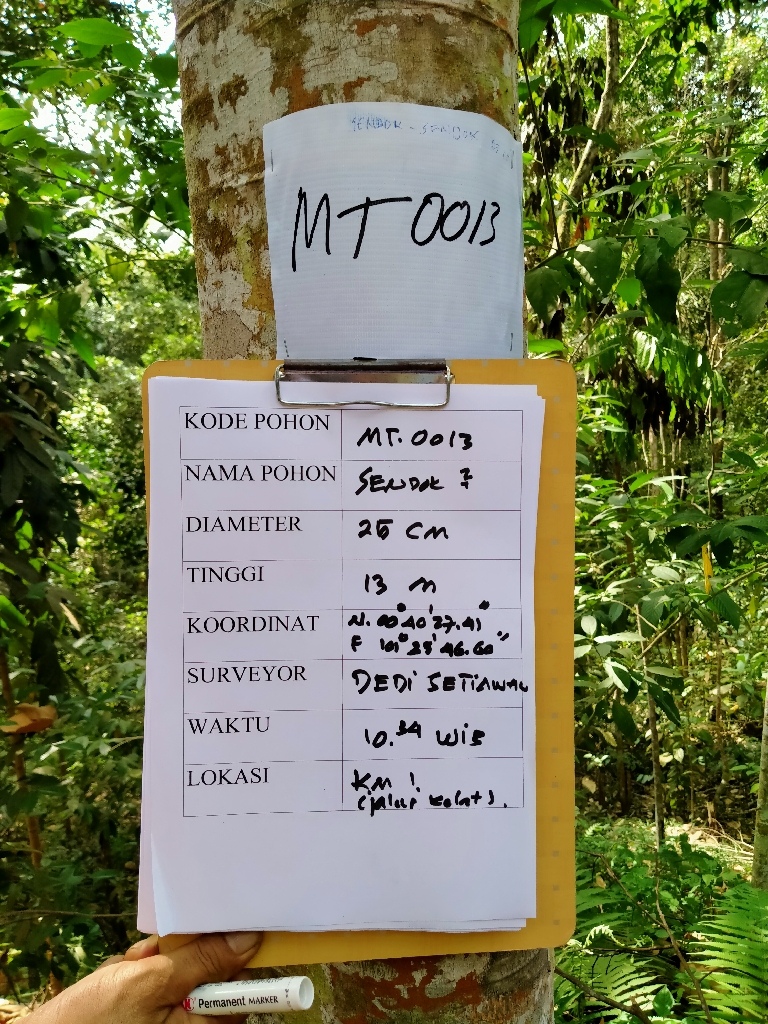 SENDOK - SENDOK
MT 0013
KODE POHON MT. 0013
NAMA POHON SENDOK ?
DIAMETER 26 CM
TINGGI 13 M
KOORDINAT N. 00° 40' 27.41"
E 101° 25' 46.60"
SURVEYOR DEDI SETIAWAN
WAKTU 10.34 WIB
LOKASI KM 1.
(jalur
Permanent MARKER